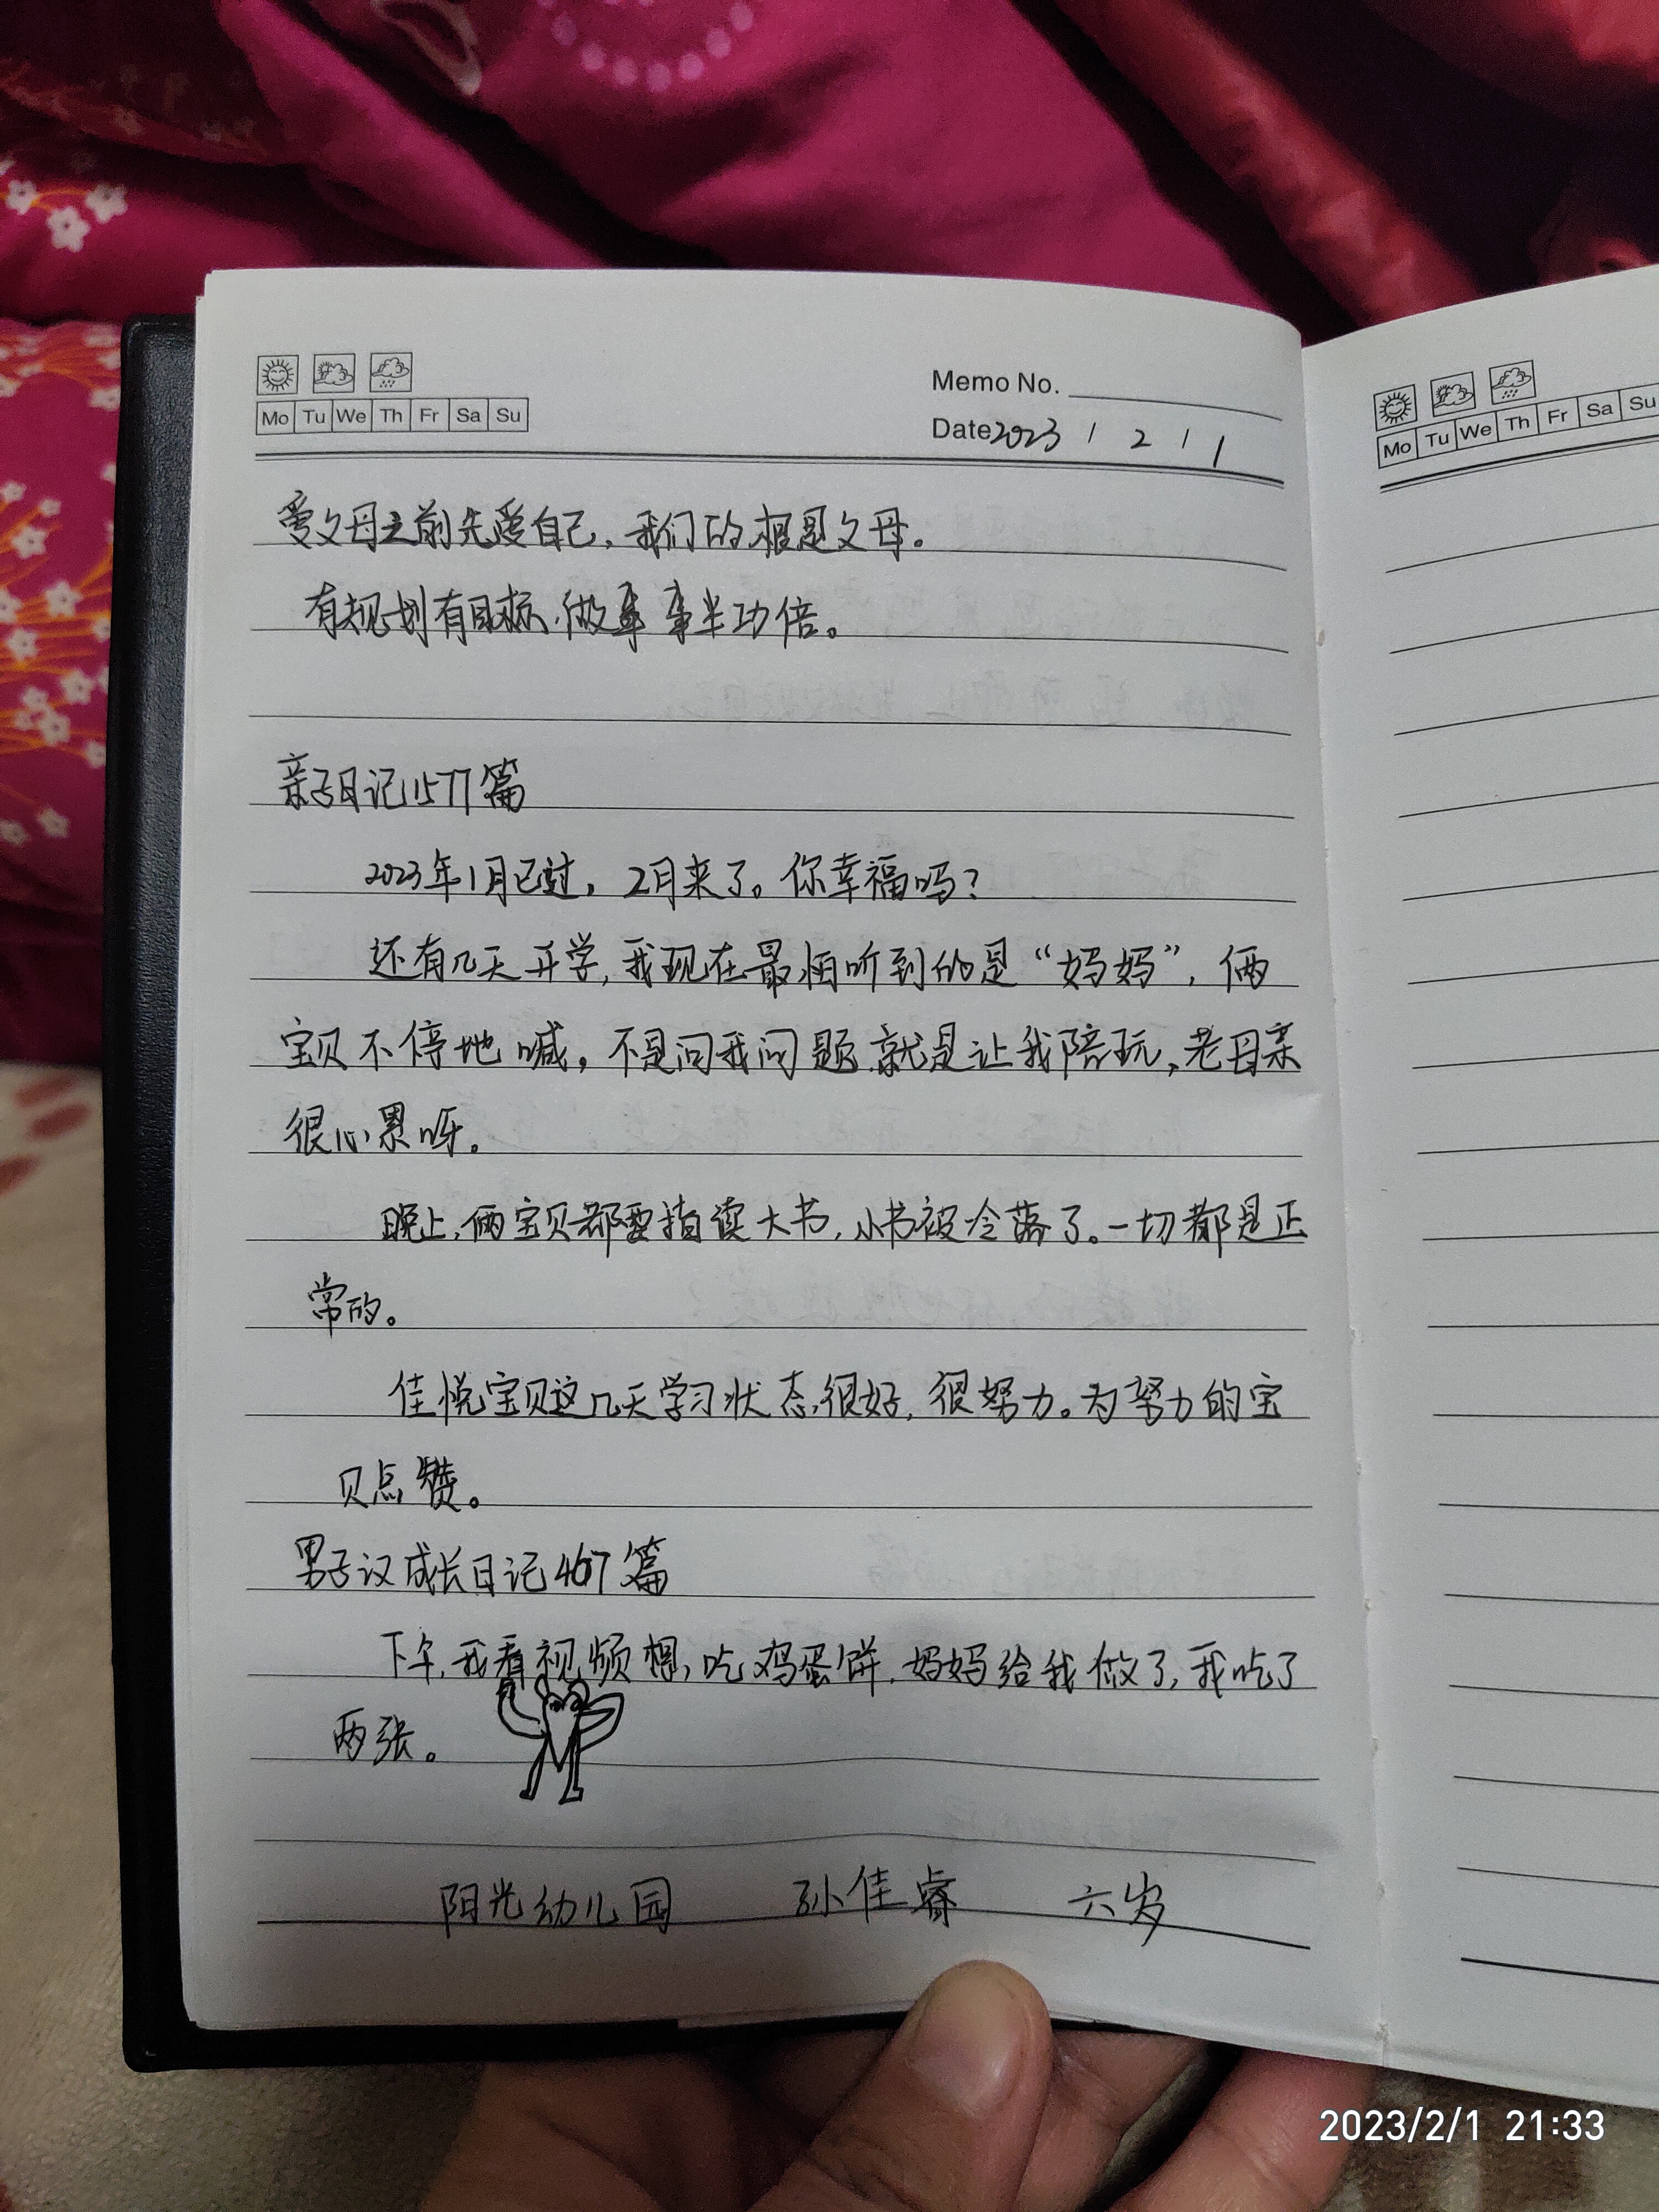 Memo No.
Mo Tu We Th Fr Sa Su
Date 2023 / 2 / 1
爱父母之前先爱自己，我们的根是父母。
有规划有目标，做事事半功倍。
亲子日记1577篇
2023年1月已过，2月来了。你幸福吗？
还有几天开学，我现在最怕听到的是“妈妈”，俩
宝贝不停地喊，不是问我问题，就是让我陪玩，老母亲
很心累呀。
晚上，俩宝贝都要指读大书，小书被冷落了。一切都是正
常的。
佳悦宝贝这几天学习状态很好，很努力。为努力的宝
贝点赞。
男子汉成长日记467篇
下午，我看视频想，吃鸡蛋饼，妈妈给我做了，我吃了
两张。
阳光幼儿园 孙佳睿 六岁
Mo Tu We Th Fr Sa Su
2023/2/1 21:33